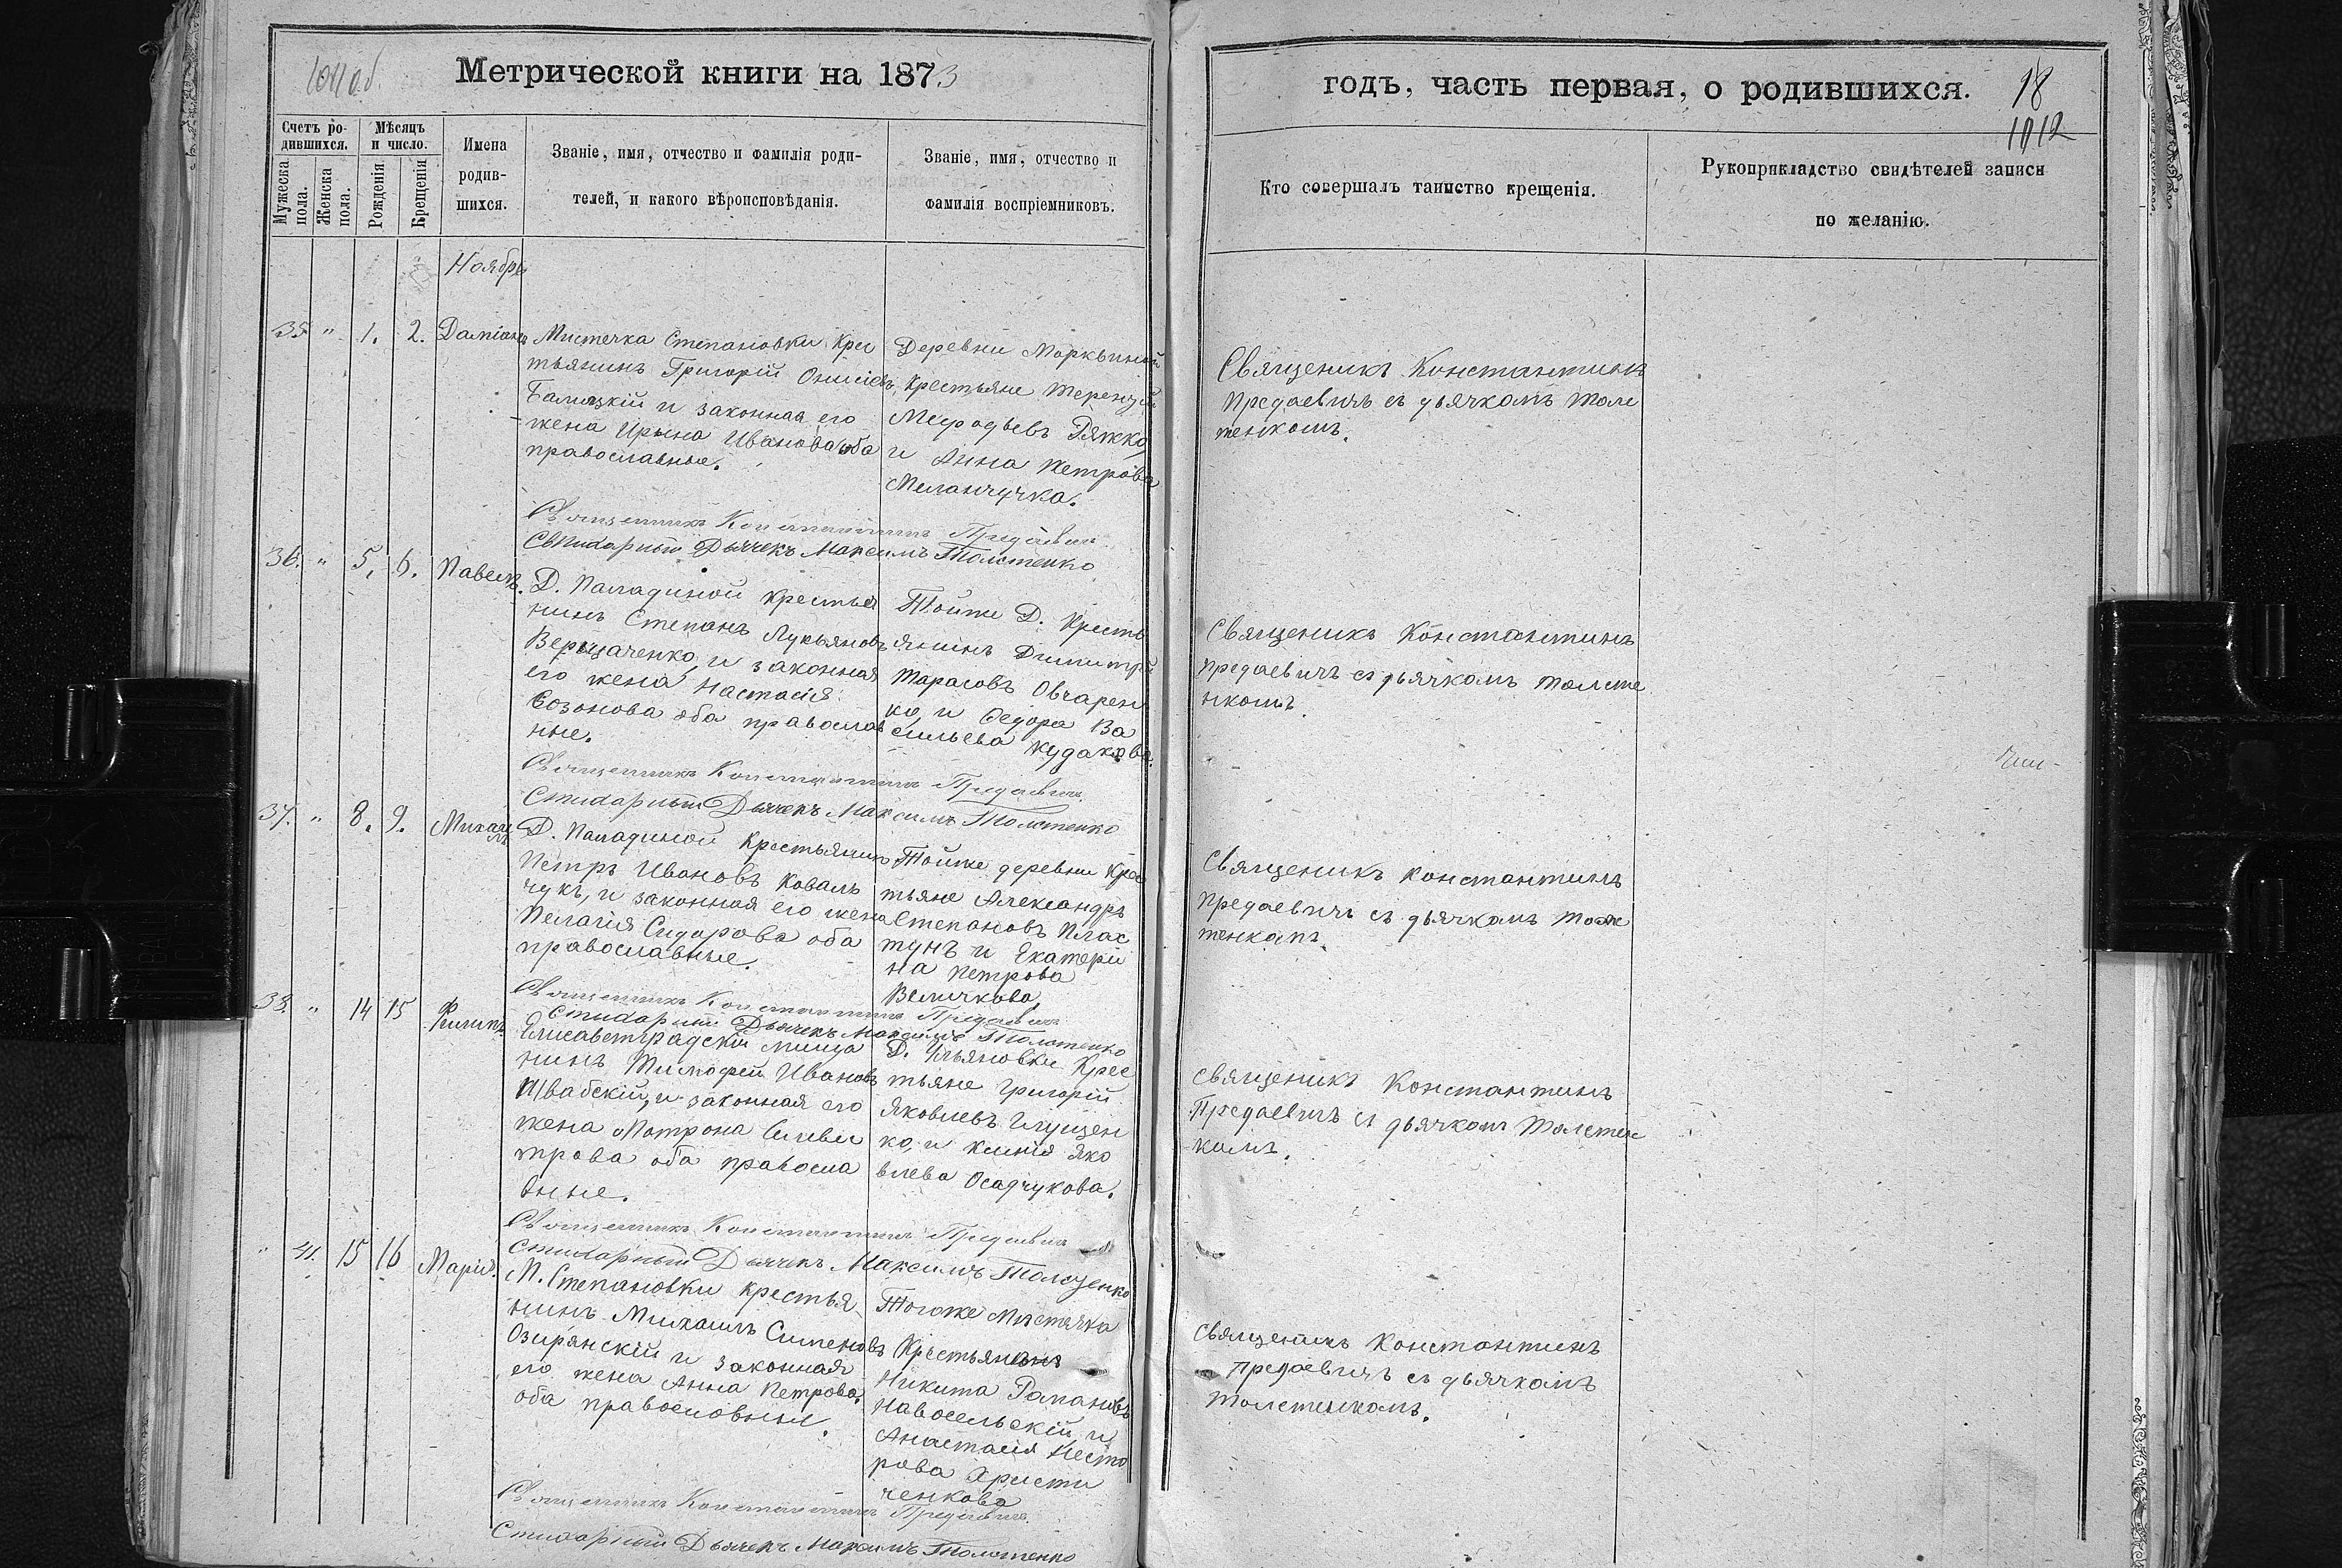 1011 об.
Метрической книги на 1873
годъ, часть первая, о родившихся.
18
1012
Счетъ ро-
дившихся.
Мѣсяцъ
и число.
Мужеска
пола.
Женска
пола.
Рожденія
Крещенія
Имена
родив-
шихся.
Званіе, имя, отчество и фамилія роди-
телей, и какого вѣроисповѣданія.
Званіе, имя, отчество и
фамилія воспріемниковъ.
Кто совершалъ таинство крещенія.
Рукоприкладство свидѣтелей записи
по желанію.
Ноябрь
35. " 1. 2. Даміанъ
Мистечка Степановки Крес
тьянинъ Григорій Онисіевъ
Балицкій и законная его
жена Ирына Иванова оба
православные.
Деревни Маркьиной
Крестьяне Терентій
Мефодьевъ Ряжко,
и Анна Петрова
Меланчучка.
Священикъ Константинъ
Предаевичъ съ дьячкомъ Толс
тенкомъ.
Священникъ Константинъ Предаевичъ
Стихарный Дьячекъ Максимъ Толстенко
36. " 5. 6. Павелъ.
Д. Паладиной крестья
нинъ Степанъ Лукьяновъ
Верещаченко, и законная
его жена Настасія
Созонова оба православ
ные.
Тойже Д. Кресть
янинъ Димитрій
Тарасовъ Овчарен
ко, и Федора Ва
сильева Кудакова.
Священикъ Константинъ
предаевичъ съ дьячкомъ толсте
нкомъ.
Священникъ Константинъ Предаевичъ
Стихарный Дьячекъ Максимъ Толстенко
37. " 8. 9. Михаи
лъ
Д. Паладиной Крестьянинъ
Петръ Ивановъ Коваль
чукъ, и законная его жена
Пелагія Сидорова оба
православные.
Тойже деревни Крес
тьяне Александръ
Степановъ Плас
тунъ и Екатери
на Петрова
Величкова,
Священикъ константинъ
предаевичъ съ дьячкомъ толс
тенкомъ.
Священникъ Константинъ Предаевичъ
Стихарный Дьячекъ Максимъ Толстенко
38. " 14 15 Филипъ
Елисаветградскій мища
нинъ Тимофей Ивановъ
Швабскій, и законная его
жена Мотрона Силиве
трова оба правосла
вные.
Д. Ульяновки Крес
тьяне Григорій
Яковлевъ Глущен
ко, и Ксенія Яко
влева Осадчукова.
Священикъ Константинъ
Предаевичъ съ дьячкомъ толстен
комъ.
Священникъ Константинъ Предаевичъ
Стихарный Дьячекъ Максимъ Толстенко
" 41. 15 16 Марія.
М. Степановки крестья
нинъ Михаилъ Сименовъ
Озирянскій и законная
его жена Анна Петрова.
оба православныя.
Тогоже Мистечка
Крестьянинъ
Никита Романовъ
Навосельскій, и
Анастасія Несто
рова Христи
ченкова
Священикъ Константинъ
предаевичъ съ дьячкомъ
толстенкомъ.
Священникъ Константинъ Предаевичъ.
Стихарный Дьячекъ Максимъ Толстенко